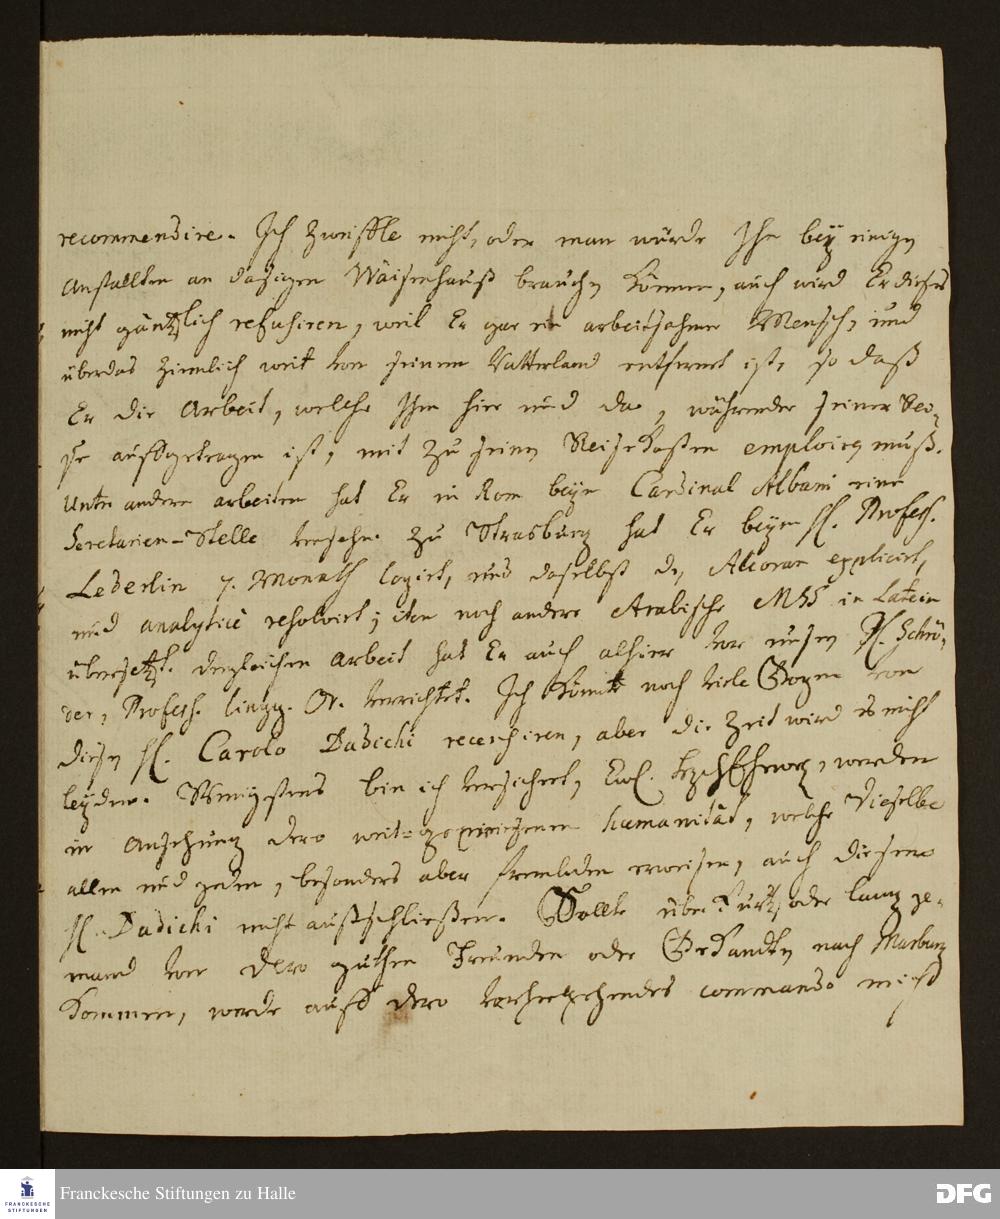 recommendire. Ich zweiffle nicht, oder man würde Ihn bey einigen
Anstallten an dasigen Waisenhauß brauchen können, auch wird Er dieses
nicht gäntzlich refusiren, weil Er gar ein arbeitsahmer Mensch, und
überdas ziemlich weit von seinem Vatterland entfernet ist, so daß
Er die Arbeit, welche Ihm hier und da, währender seiner Rei-
se auffgetragen ist, mit zu seinen Reisekosten emploiren muß.
Unter andern arbeiten hat Er in Rom beym Cardinal Albani eine
Secretarien-Stelle versehn. Zu Strasburg hat Er beym H. Profess.
Lederlin 7. Monath logirt, und daselbst den Alcoran explicirt,
und analyticè resolvirt; item noch andere Arabische MSS in Latein
übersetzt. dergleichen Arbeit hat Er auch alhier vor unsern H. Schrö-
der, Profess. lingg. Or. verrichtet. Ich könnte noch viele Bogen von
diesen H. Carolo Dadichi recensiren, aber die Zeit wird es nicht
leyden. Wenigstens bin ich versichert, Ewl. werden
in Ansehung dero weit-gepriesenen humanität, welche Dieselbe
allen und jeden, besonders aber frembden erweisen, auch diesen
H. Dadichi nicht außschließen. Sollte über kurtz oder lang je-
mand von Dero guthen Freunden oder Bekandten nach Marburg
kommen, werde auff dero vorhergehendes commando nicht
Franckesche Stiftungen zu Halle
FRANCKESCHE
STIFTUNGEN
DFG